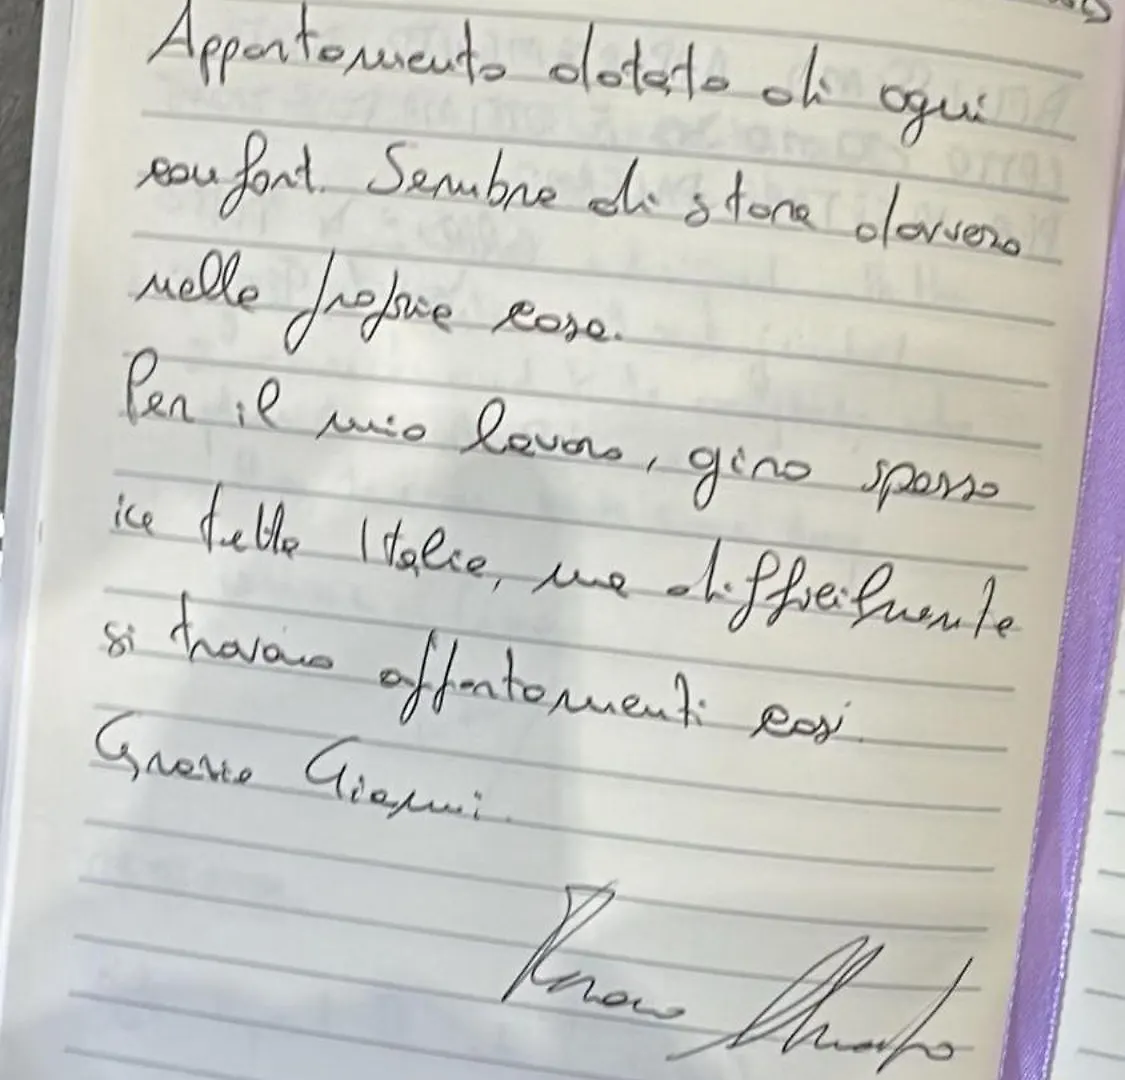 Appartamento dotato di ogni
confort. Sembra di stare davvero
nella propria casa.
Per il mio lavoro, giro spesso
in tutta Italia, ma difficilmente
si trovano appartamenti così.
Grazie Gianni.